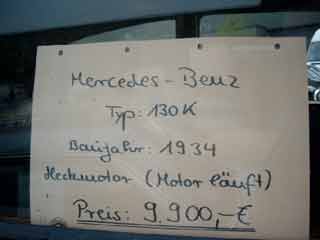 Mercedes-Benz
Typ: 130K
Baujahr: 1934
Heckmotor (Motor läuft)
Preis: 9.900,-€